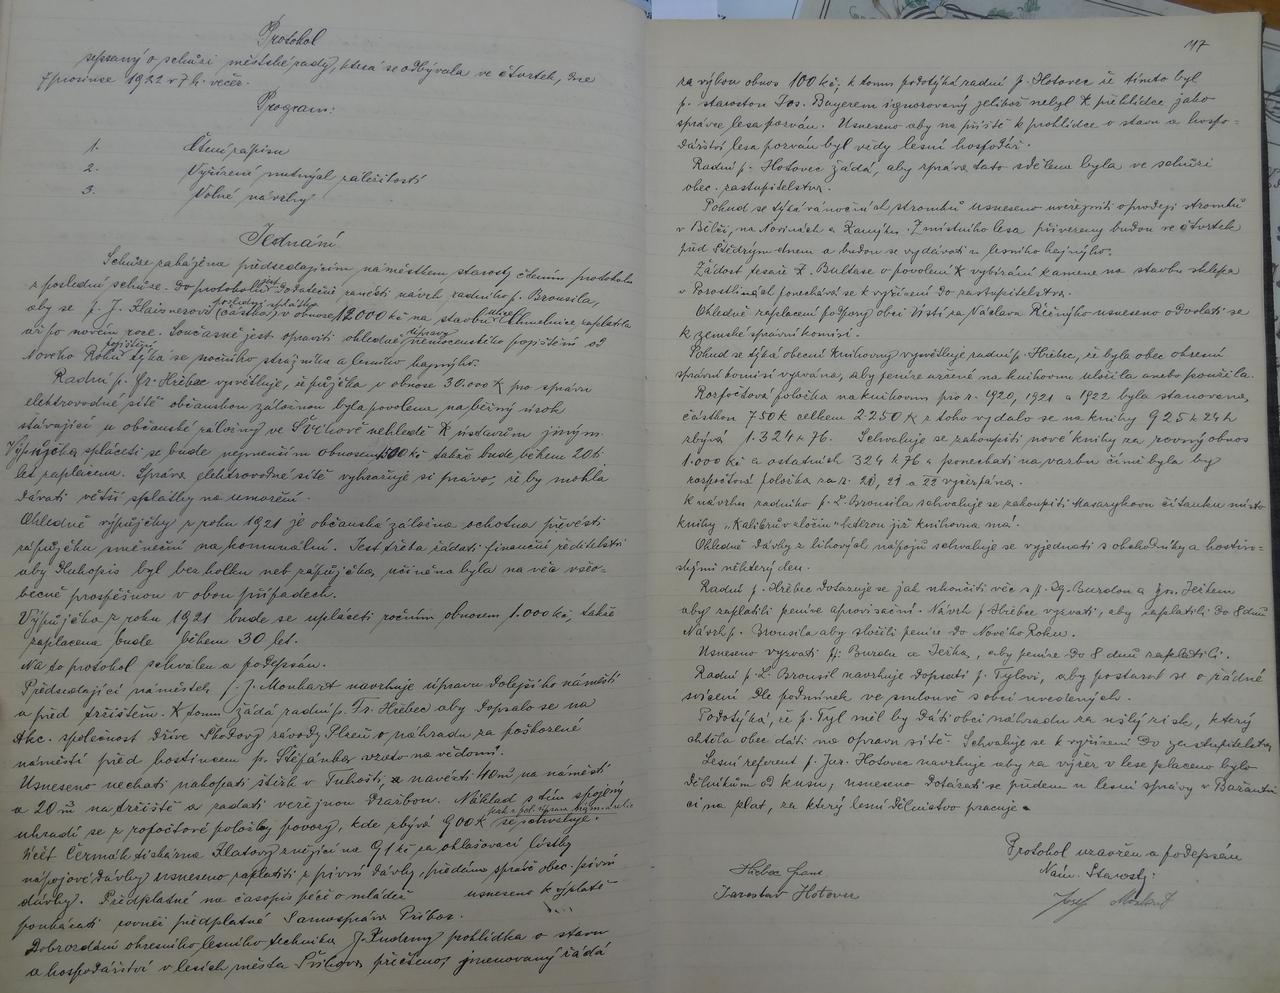 Protokol
sepsaný o schůzi městské rady, která se odbývala ve čtvrtek, dne
7 prosince 1922 v 7 h. večer.
Program:
1. Čtení zápisu
2. Vyřízení nutných záležitostí
3. Volné návrhy
Jednání
Schůze zahájena předsedajícím náměstkem starosty čtením protokolu
z poslední schůze. Do protokolu dodatečně zanésti návrh radního p. Brousila,
aby se p. J. Klaisnerovi částka v obnose 12.000 kč na stavbu chmelnice zaplatila
až po novém roce. Současně jest opraviti ohledně nemocenského pojištění od
Nového Roku týká se nočního strážníka a lesního hajného.
Radní p. Fr. Hřebec vysvětluje, že půjčka v obnose 30.000 K pro správu
elektrovodné sítě občanskou záložnou byla povolena na běžný úrok
stávající u občanské záložny ve Švihově nehledě k ústavům jiným.
Výpůjčka spláceti se bude nejmenším obnosem 1500 kč takže bude během 20ti
let zaplacena. Správa elektrovodné sítě vyhražuje si právo, že by mohla
dávati větší splátky na umoření.
Ohledně výpůjčky z roku 1921 je občanská záložna ochotna převésti
zápůjčku směneční na komunální. Jest třeba žádati finanční ředitelství
aby dluhopis byl bez kolku neb zápůjčka, učiněna byla na věc všeo-
becně prospěšnou v obou případech.
Výpůjčka z roku 1921 bude se upláceti ročním obnosem 1.000 kč, takže
zaplacena bude během 30 let.
Na to protokol schválen a podepsán.
Předsedající náměstek p. J. Monhart navrhuje úpravu Dolejšího náměstí
a před tržištěm. K tomu žádá radní p. Fr. Hřebec aby dopsalo se na
Akc. společnost dříve Škodovy závody Plzeň o náhradu za poškozené
náměstí před hostincem p. Štěfánka, vzato na vědomí.
Usneseno nechati nakopati štěrk v Tuhošti, a navézti 40 m³ na náměstí
a 20 m³ na tržiště a zadati veřejnou dražbou. Náklad s tím spojený
uhradí se z rozpočtové položky povozy, kde zbývá 900 K se schvaluje.
Účet Čermák tiskárna Klatovy znějící na 91 kč za ohlašovací lístky
nápojové dávky usneseno zaplatiti z pivní dávky, předáno správě obec. pivní
dávky. Předplatné na časopis péči o mládež usneseno k výplatě
poukázati rovněž předplatné Samospráva Příbor.
Dobrozdání okresního lesního technika prohlídka o stavu
a hospodářství v lesích města Švihova přečteno, jmenovaný žádá
117
za výkon obnos 100 kč, k tomu podotýká radní p. Hotovec že tímto byl
p. starostou Jos. Bayerem ignorovaný jelikož nebyl k přehlídce jako
správce lesa pozván. Usneseno aby na příště k prohlídce o stavu a hospo-
dářství lesa pozván byl vždy lesní hospodář.
Radní p. Hotovec žádá, aby zpráva tato sdělena byla ve schůzi
obec. zastupitelstva.
Pokud se týká vánočních stromků usneseno uveřejniti o prodeji stromků
v Bělči, na Novinách a Kamýku. Z místního lesa přivezeny budou ve čtvrtek
před Štědrým dnem a budou se vydávati u lesního hajného.
Žádost tesaře F. Bultase o povolení k vybírání kamene na stavbu sklepa
v Porostlinách ponechává se k vyřízení do zastupitelstva.
Ohledně zaplacení podpory obci Ústí za Václava Říčného usneseno odvolati se
k zemské správní komisi.
Pokud se týká obecní knihovny vysvětluje radní p. Hřebec, že byla obec okresní
správní komisí vyzvána, aby peníze určené na knihovnu uložila anebo použila.
Rozpočtová položka na knihovnu pro r. 1920, 1921 a 1922 byla stanovena,
částkou 750 K celkem 2250 K z toho vydalo se na knihy 925 K 24 h
zbývá 1.324 K 76. Schvaluje se zakoupiti nové knihy za rovný obnos
1.000 kč a ostatních 324 K 76 h ponechati na vazbu čímž byla by
rozpočtová položka za r. 20, 21 a 22 vyčerpána.
K návrhu radního p. L. Brousila schvaluje se zakoupiti Masarykovu čítanku místo
knihy „Kalibův zločin“ kterou již knihovna má.
Ohledně dávky z lihových nápojů schvaluje se vyjednati s obchodníky a hostin-
skými některý den.
Radní p. Hřebec dotazuje se jak ukončiti věc s p. Ig. Burdou a Jn. Ješkem
aby zaplatili peníze aprovisační. Návrh p. Hřebce vyzvati, aby zaplatili do 8 dnů
Návrh p. Brousila aby složili peníze do Nového Roku.
Usneseno vyzvati pp. Burdu a Ješka, aby peníze do 8 dnů zaplatili.
Radní p. L. Brousil navrhuje dopsati p. Tylovi, aby postaral se o řádné
svícení dle podmínek ve smlouvě s obcí uvedených.
Podotýká, že p. Tyl měl by dáti obci náhradu za ušlý zisk, který
chtěla obec dáti na opravu sítě. Schvaluje se k vyřízení do zastupitelstva
Lesní referent p. Jar. Hotovec navrhuje aby za výřez v lese placeno bylo
dělníkům od kusu, usneseno dotázati se předem u lesní správy v Bažantni-
ci na plat, za který lesní dělnictvo pracuje.
Protokol uzavřen a podepsán
Nám. Starosty:
Hřebec Franc
Jaroslav Hotovec
Josef Monhart